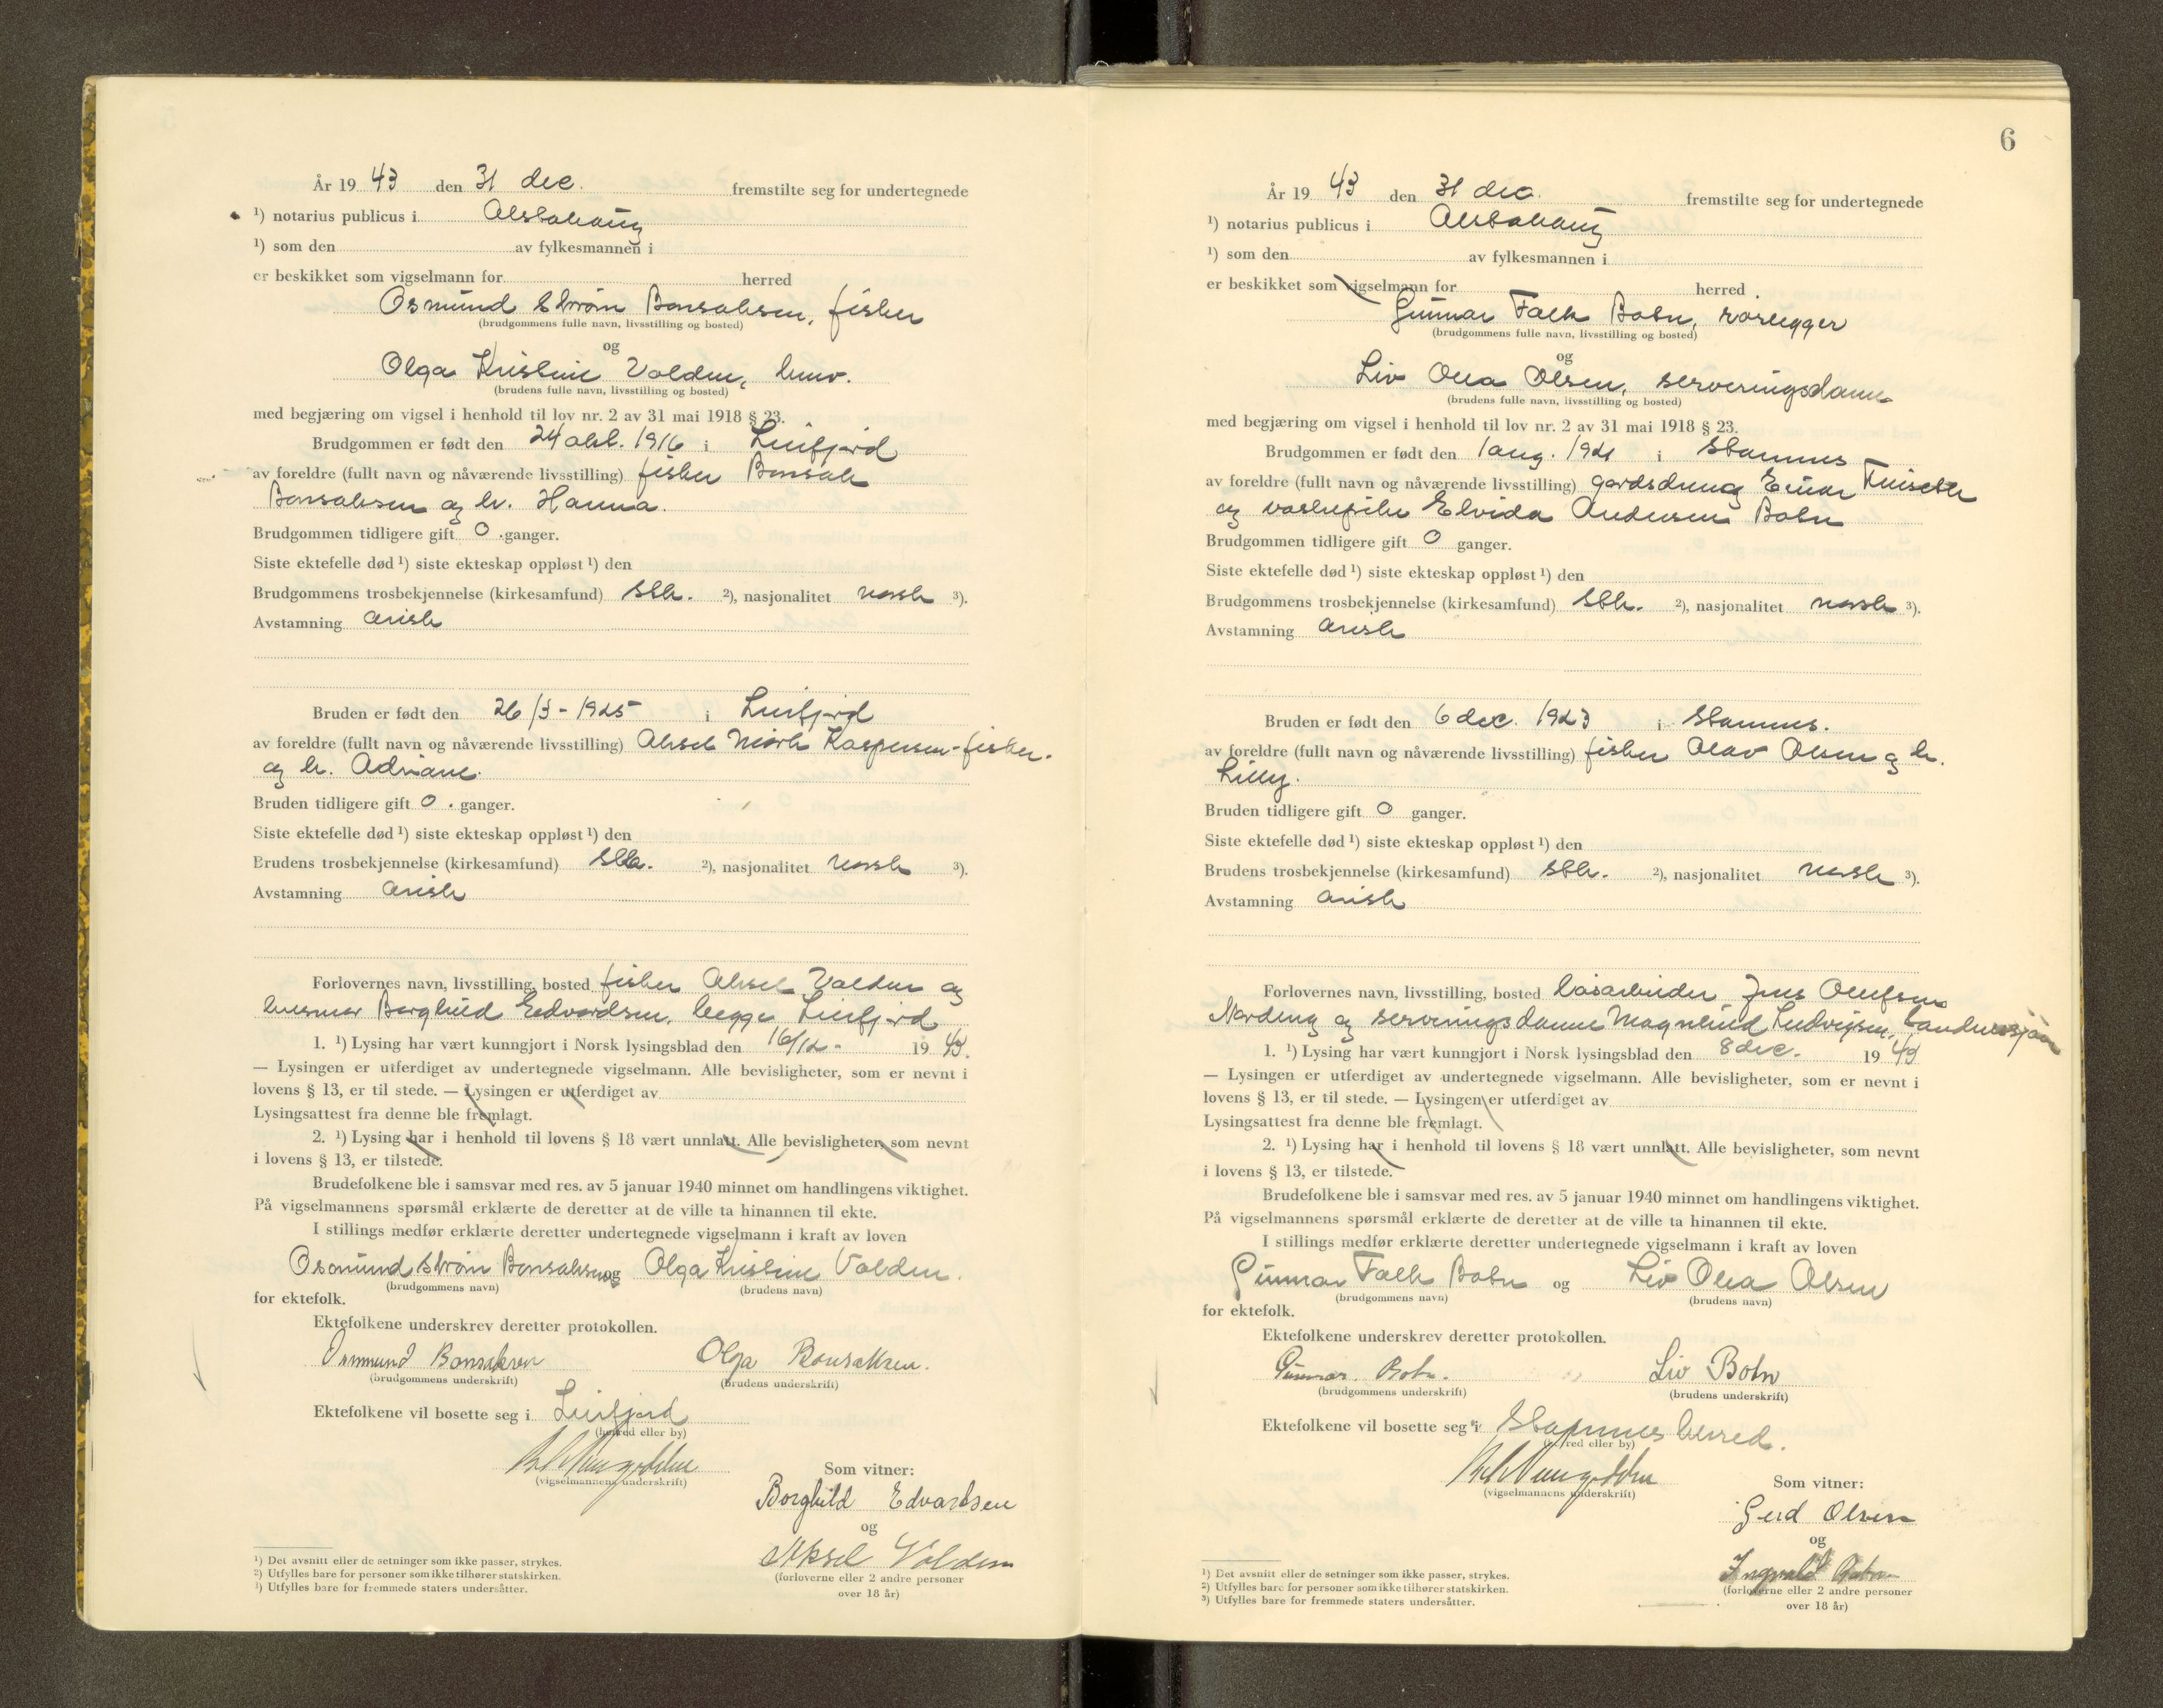 År 19 43 den 31 dec. fremstilte seg for undertegnede
¹) notarius publicus i Alstahaug
¹) som den av fylkesmannen i
er beskikket som vigselmann for herred
Osmund Strøm Bonsaksen, fisker
(brudgommens fulle navn, livsstilling og bosted)
og
Olga Kristine Valden, husv.
(brudens fulle navn, livsstilling og bosted)
med begjæring om vigsel i henhold til lov nr. 2 av 31 mai 1918 § 23.
Brudgommen er født den 24 okt. 1916 i Leirfjord
av foreldre (fullt navn og nåværende livsstilling) fisker Bonsak
Bonsaksen og h. Hanna.
Brudgommen tidligere gift 0 ganger.
Siste ektefelle død ¹) siste ekteskap oppløst ¹) den
Brudgommens trosbekjennelse (kirkesamfund) stk. ²), nasjonalitet norsk ³).
Avstamning arisk
Bruden er født den 26/3 - 1925 i Leirfjord
av foreldre (fullt navn og nåværende livsstilling) Aksel Mørk Kaspersen - fisker.
og h. Adriane.
Bruden tidligere gift 0 . ganger.
Siste ektefelle død ¹) siste ekteskap oppløst ¹) den
Brudens trosbekjennelse (kirkesamfund) stk. ²), nasjonalitet norsk ³).
Avstamning arisk
Forlovernes navn, livsstilling, bosted fisker Aksel Valden og
husmor Borghild Edvardsen, begge Leirfjord
1. ¹) Lysing har vært kunngjort i Norsk lysingsblad den 16/12 - 19 43.
— Lysingen er utferdiget av undertegnede vigselmann. Alle bevisligheter, som er nevnt i
lovens § 13, er til stede. — Lysingen er utferdiget av
Lysingsattest fra denne ble fremlagt.
2. ¹) Lysing har i henhold til lovens § 18 vært unnlatt. Alle bevisligheter, som nevnt
i lovens § 13, er tilstede.
Brudefolkene ble i samsvar med res. av 5 januar 1940 minnet om handlingens viktighet.
På vigselmannens spørsmål erklærte de deretter at de ville ta hinannen til ekte.
I stillings medfør erklærte deretter undertegnede vigselmann i kraft av loven
Osmund Strøm Bonsaksen og Olga Kristine Valden.
(brudgommens navn) (brudens navn)
for ektefolk.
Ektefolkene underskrev deretter protokollen.
Osmund Bonsaksen Olga Bonsaksen.
(brudgommens underskrift) (brudens underskrift)
Ektefolkene vil bosette seg i Leirfjord
(herred eller by)
(vigselmannens underskrift)
Som vitner:
Borghild Edvardsen
og
Aksel Valden
(forloverne eller 2 andre personer
over 18 år)
¹) Det avsnitt eller de setninger som ikke passer, strykes.
²) Utfylles bare for personer som ikke tilhører statskirken.
³) Utfylles bare for fremmede staters undersåtter.
6
År 19 43 den 31 dec. fremstilte seg for undertegnede
¹) notarius publicus i Alstahaug
¹) som den av fylkesmannen i
er beskikket som vigselmann for herred
Gunnar Falk Botn, rørlegger
(brudgommens fulle navn, livsstilling og bosted)
og
Liv Olea Olsen, serveringsdame
(brudens fulle navn, livsstilling og bosted)
med begjæring om vigsel i henhold til lov nr. 2 av 31 mai 1918 § 23.
Brudgommen er født den 1 aug. 1921 i Stamnes
av foreldre (fullt navn og nåværende livsstilling) gårdsdreng Einar
og vaskepike Elvida Andersen Botn
Brudgommen tidligere gift 0 ganger.
Siste ektefelle død ¹) siste ekteskap oppløst ¹) den
Brudgommens trosbekjennelse (kirkesamfund) stk. ²), nasjonalitet norsk ³).
Avstamning arisk
Bruden er født den 6 dec. 1923 i Stamnes.
av foreldre (fullt navn og nåværende livsstilling) fisker Olav Olsen og h.
Lilly.
Bruden tidligere gift 0 ganger.
Siste ektefelle død ¹) siste ekteskap oppløst ¹) den
Brudens trosbekjennelse (kirkesamfund) stk. ²), nasjonalitet norsk ³).
Avstamning arisk
Forlovernes navn, livsstilling, bosted løsarbeider Jens Olufsen
Nordeng og serveringsdame Magnhild Ludvigsen, Sandnessjøen
1. ¹) Lysing har vært kunngjort i Norsk lysingsblad den 8 dec. 19 43
— Lysingen er utferdiget av undertegnede vigselmann. Alle bevisligheter, som er nevnt i
lovens § 13, er til stede. — Lysingen er utferdiget av
Lysingsattest fra denne ble fremlagt.
2. ¹) Lysing har i henhold til lovens § 18 vært unnlatt. Alle bevisligheter, som nevnt
i lovens § 13, er tilstede.
Brudefolkene ble i samsvar med res. av 5 januar 1940 minnet om handlingens viktighet.
På vigselmannens spørsmål erklærte de deretter at de ville ta hinannen til ekte.
I stillings medfør erklærte deretter undertegnede vigselmann i kraft av loven
Gunnar Falk Botn og Liv Olea Olsen
(brudgommens navn) (brudens navn)
for ektefolk.
Ektefolkene underskrev deretter protokollen.
Gunnar Botn. Liv Botn
(brudgommens underskrift) (brudens underskrift)
Ektefolkene vil bosette seg i Stamnes herred.
(herred eller by)
(vigselmannens underskrift)
Som vitner:
Gerd Olsen
og
Ingvald Botn
(forloverne eller 2 andre personer
over 18 år)
¹) Det avsnitt eller de setninger som ikke passer, strykes.
²) Utfylles bare for personer som ikke tilhører statskirken.
³) Utfylles bare for fremmede staters undersåtter.